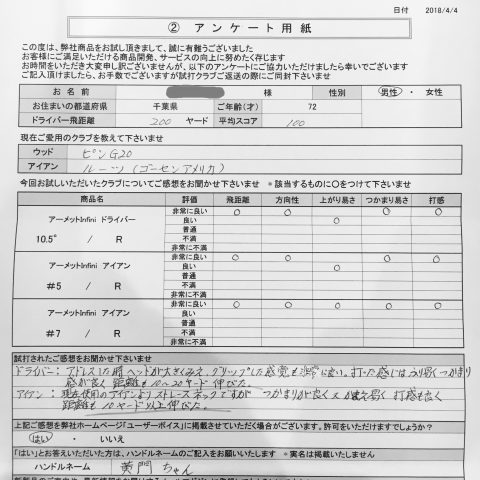 日付 2018/4/4
② アンケート用紙
この度は、弊社商品をお試し頂きまして、誠に有難うございました
お客様にご満足いただける商品開発、サービスの向上に努めたく存じます
お時間をいただき大変申し訳ございませんが、以下のアンケートにご協力いただけましたら幸いでございます
ご記入頂けましたら、お手数でございますが試打クラブご返送の際にご同封下さいませ
お 名 前 様 性別 男性 ・ 女性
お住まいの都道府県 千葉県 ご年齢(才) 72
ドライバー飛距離 200 ヤード 平均スコア 100
現在ご愛用のクラブを教えて下さいませ
ウッド ピンG20
アイアン ルーツ(ゴーセンアメリカ)
今回お試しいただいたクラブについてご感想をお聞かせ下さいませ *該当するものに〇をつけて下さいませ
商品名 評価 飛距離 方向性 上がり易さ つかまり易さ 打感
アーメットInfini ドライバー
10.5° / R
非常に良い ○ ○ ○ ○
良い ○
普通
不満
非常に不満
アーメットInfini アイアン
#5 / R
非常に良い ○ ○ ○ ○
良い ○
普通
不満
非常に不満
アーメットInfini アイアン
#7 / R
非常に良い ○ ○ ○ ○ ○
良い
普通
不満
非常に不満
試打されたご感想をお聞かせ下さいませ
ドライバー:アドレスした時ヘッドが大きくみえ、グリップした感覚も非常に良い。打った感じは
感が良く 距離も10~20ヤード伸びた。
アイアン:現在使用のアイアンよりストレースネックですが つかまりが良く 打感も良く
距離も10ヤード以上伸びた。
上記ご感想を弊社ホームページ「ユーザーボイス」に掲載させていただく場合がございます。許可をいただけますでしょうか?
はい ・ いいえ
「はい」とお答えいただいた方は、ハンドルネームのご記入をお願いいたします *実名は掲載いたしません
ハンドルネーム 黄門ちゃん